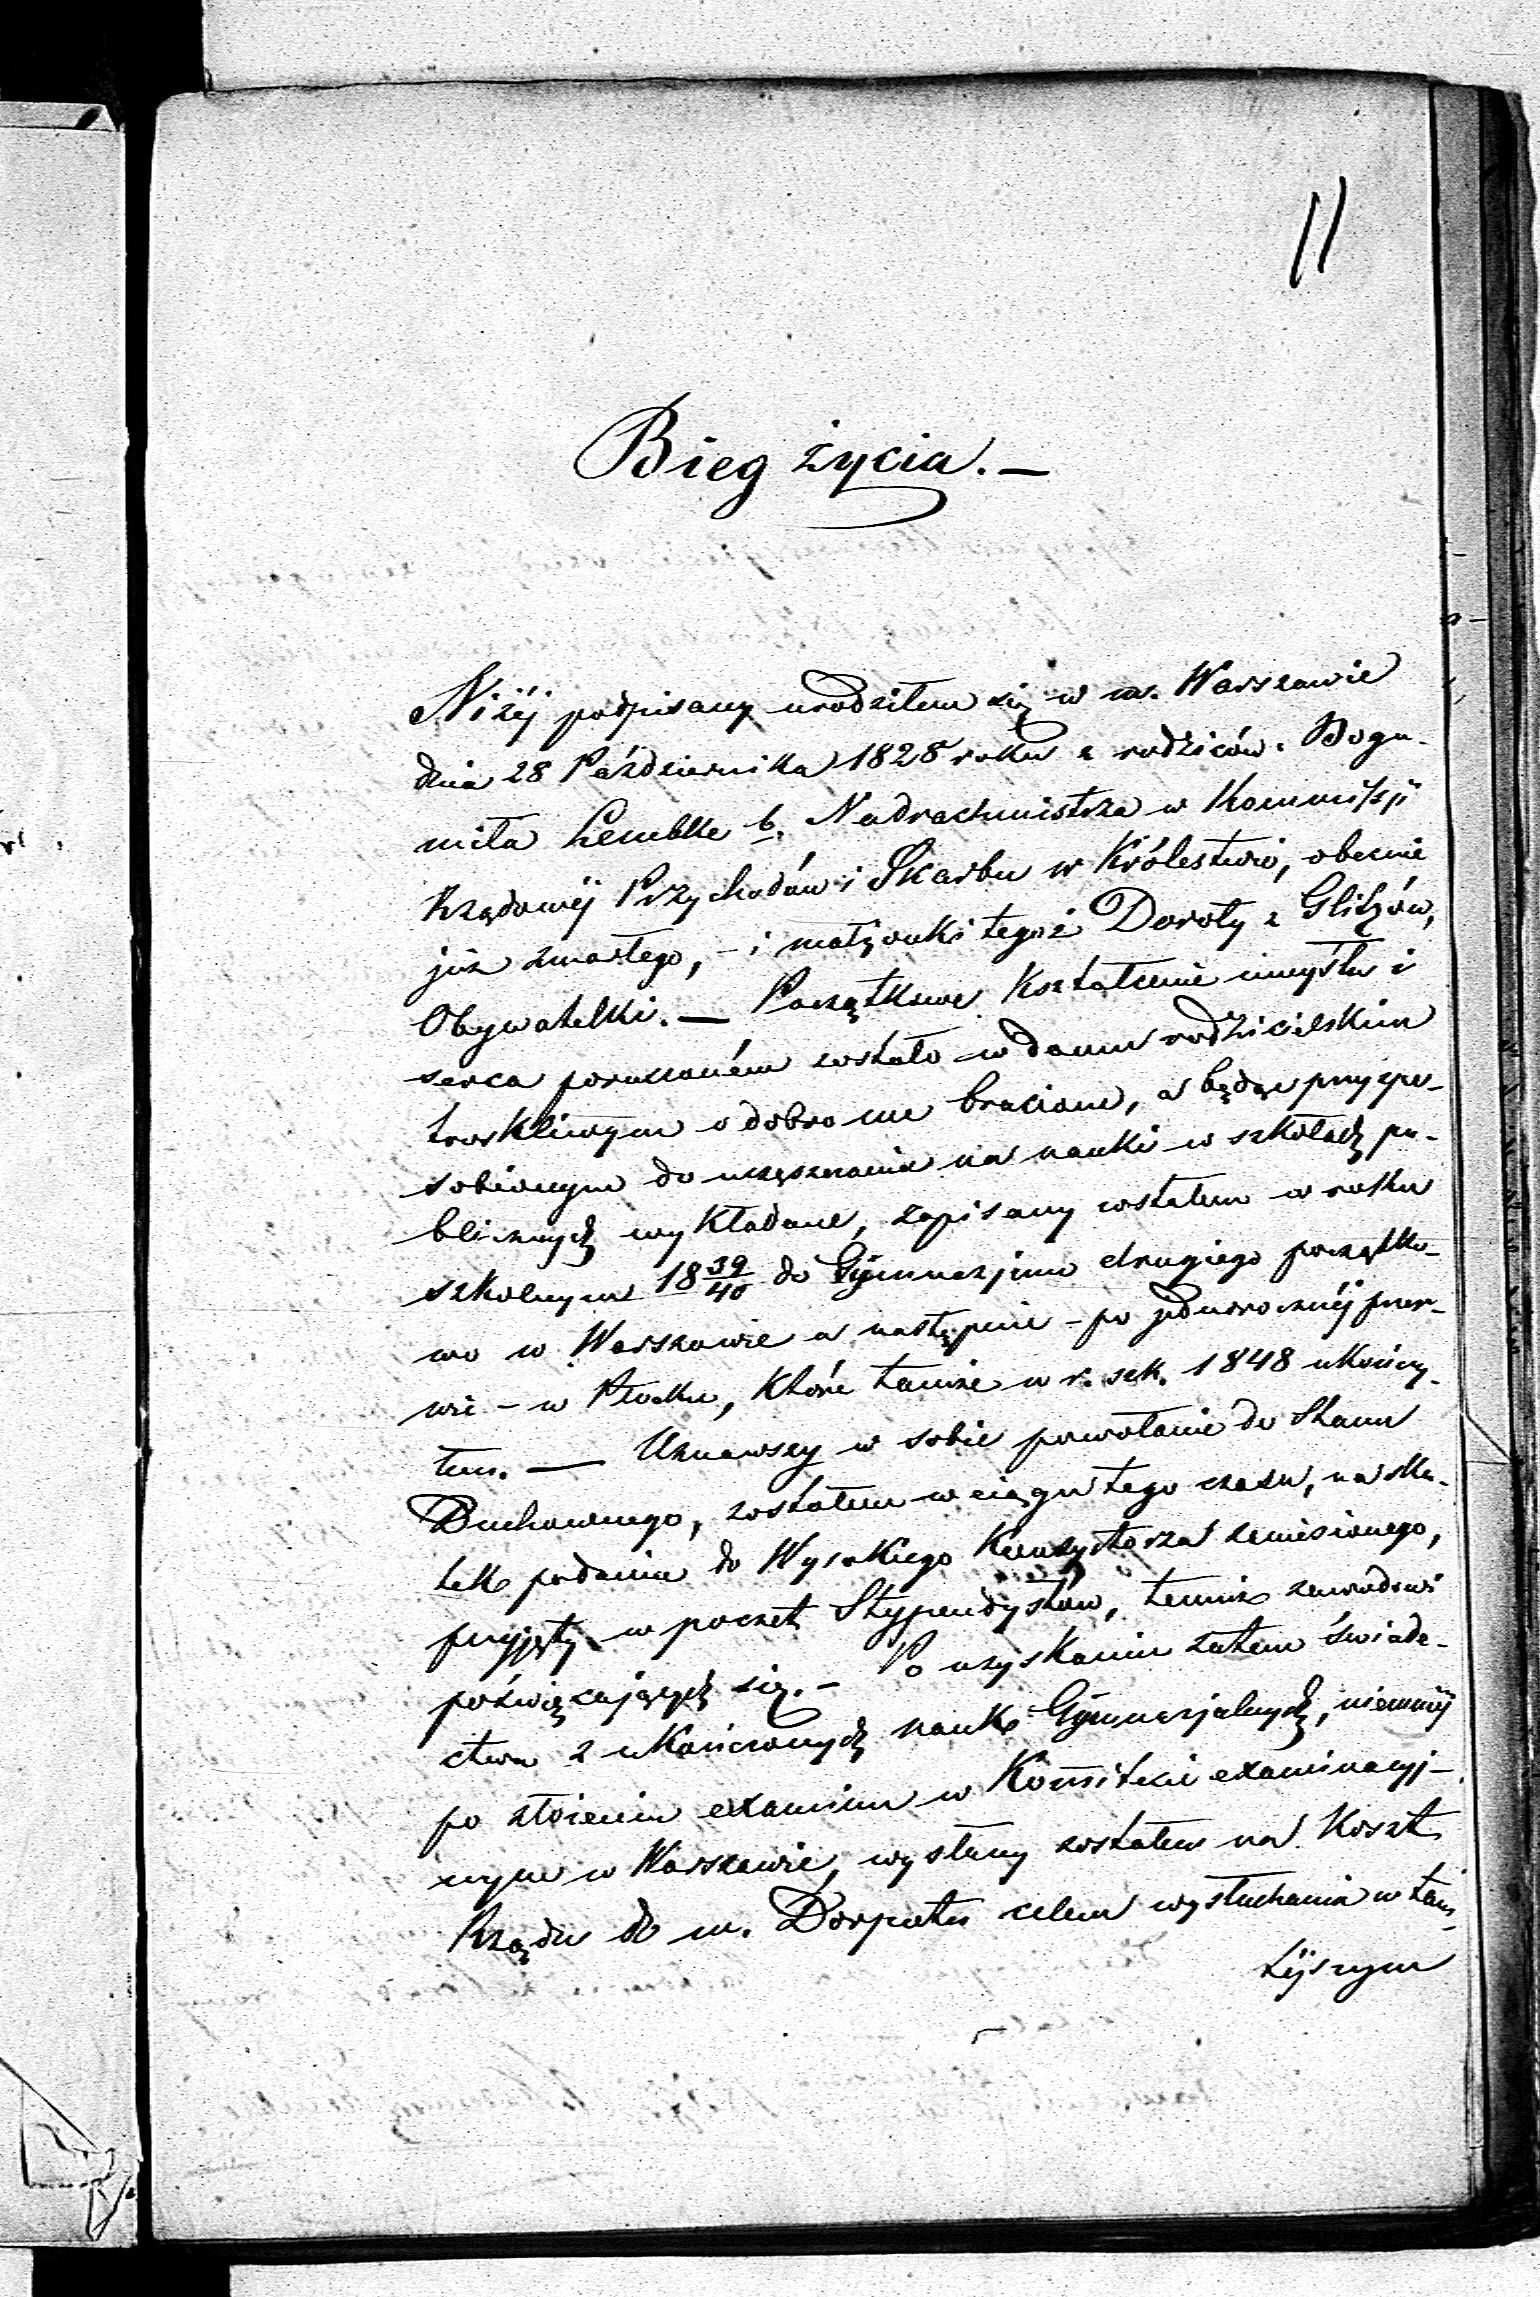 11
Bieg życia. —
Niżéj podpisany urodziłem się w m. Warszawie
dnia 28 Października 1828 roku z rodziców: Bogu-
miła Lembke b. Nadrachmistrza w Kommissji
Rządowéj Przychodów i Skarbu w Królestwie, obecnie
już zmarłego, – i małżonki tegoż Doroty z Glitzów,
Obywatelki. — Początkowe kształcenie umysłu i
serca poruczoném zostało w domu rodzicielskim
troskliwym o dobro me braciom, a będąc przyspo-
sobionym do uczęszczania na nauki w szkołach pu-
blicznych wykładane, zapisany zostałem w roku
szkolnym 18 39/40 do Gymnazjum drugiego początko-
wo w Warszawie a następnie – po jednorocznéj przer-
wie – w Płocku, które tamże w r. szk. 1848 ukończy-
łem. — Uznawszy w sobie powołanie do Stanu
Duchownego, zostałem w ciągu tego czasu, na sku-
tek podania do Wysokiego Konsystorza zaniesionego,
przyjęty w poczet Stypendystów, temuż zawodowi
poświęcających się. – Po uzyskaniu zatem świade-
ctwa z ukończonych nauk Gymnazjalnych, niemniéj
po złożeniu examinu w Komitecie examinacyj-
nym w Warszawie, wysłany zostałem na koszt
Rządu do m. Dorpatu celem wysłuchania w tam-
téjszym